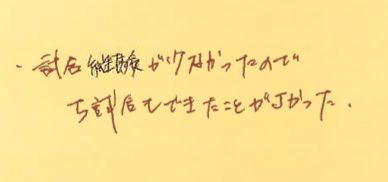 ・試合経験が少なかったので
5試合もできたことがよかった.